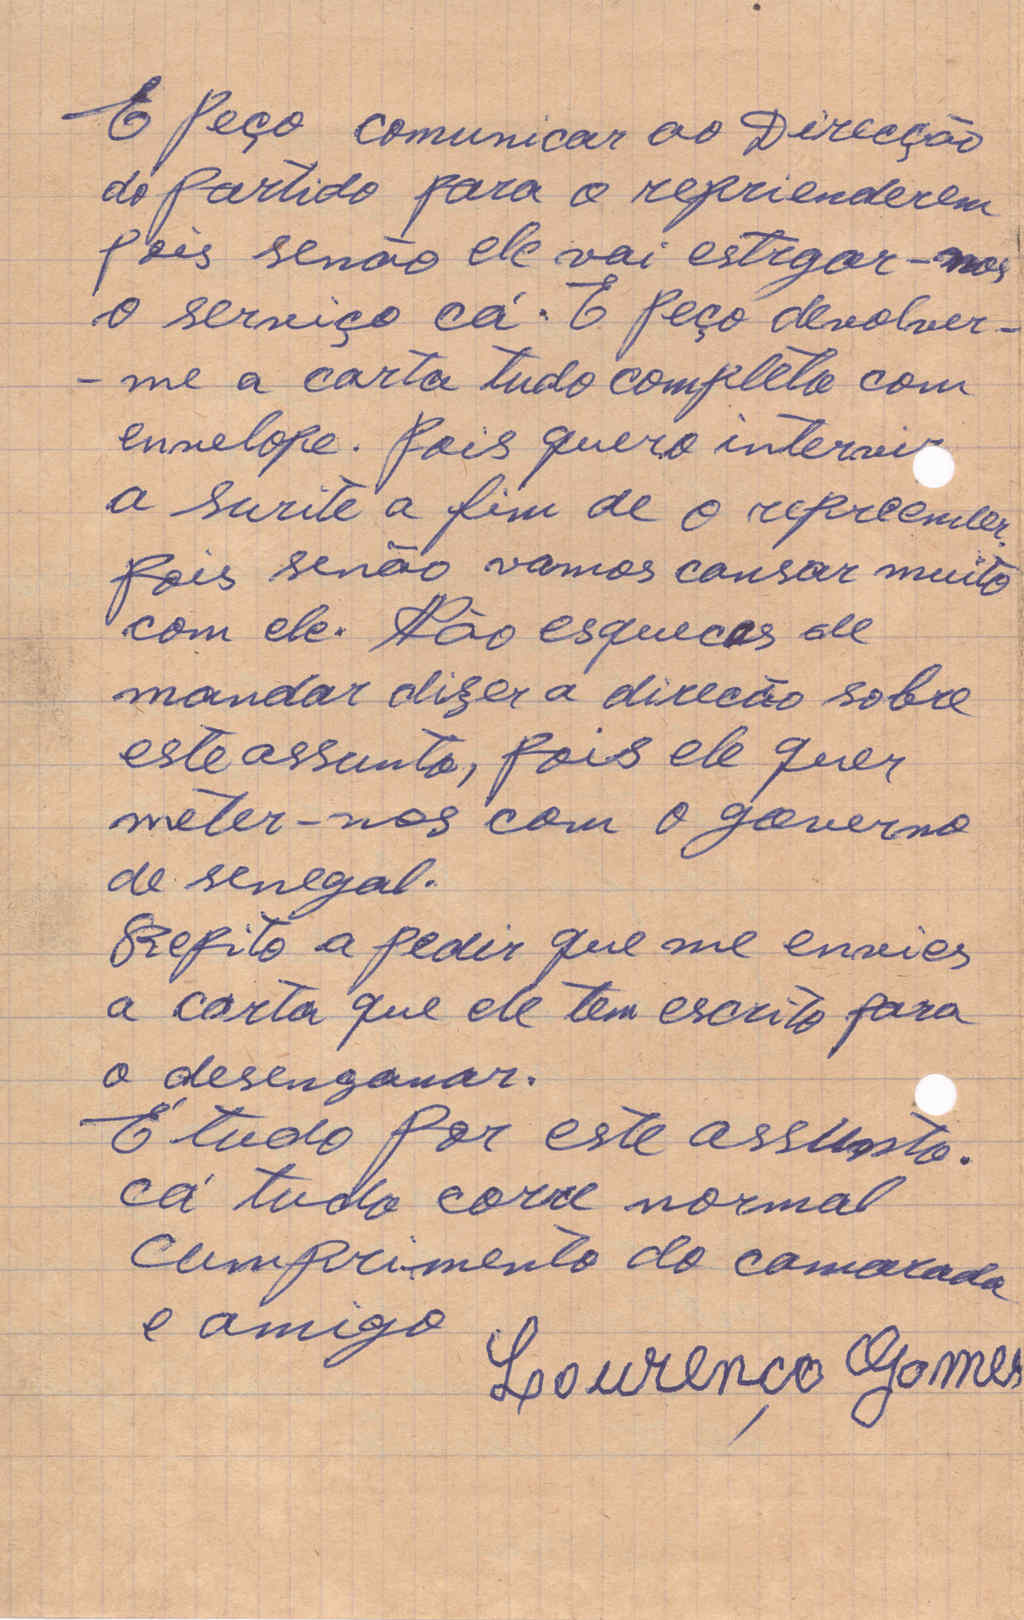 E peço comunicar ao Direcção
do partido para o reprienderem
pois senão ele vai estrgar-nos
o serviço cá. E peço devolver-
-me a carta tudo completa com
envelope. Pois quero intervir
a surite a fim de o repreender.
pois senão vamos cansar muito
com ele. Não esquecas de
mandar dizer a direcão sobre
este assunto, pois ele quer
meter-nos com o governo
de senegal.
Repito a pedir que me envies
a carta que ele tem escrito para
o desenganar.
É tudo por este assunto.
cá tudo corre normal
Cumprimento do camarada
e amigo
Lourenço Gomes